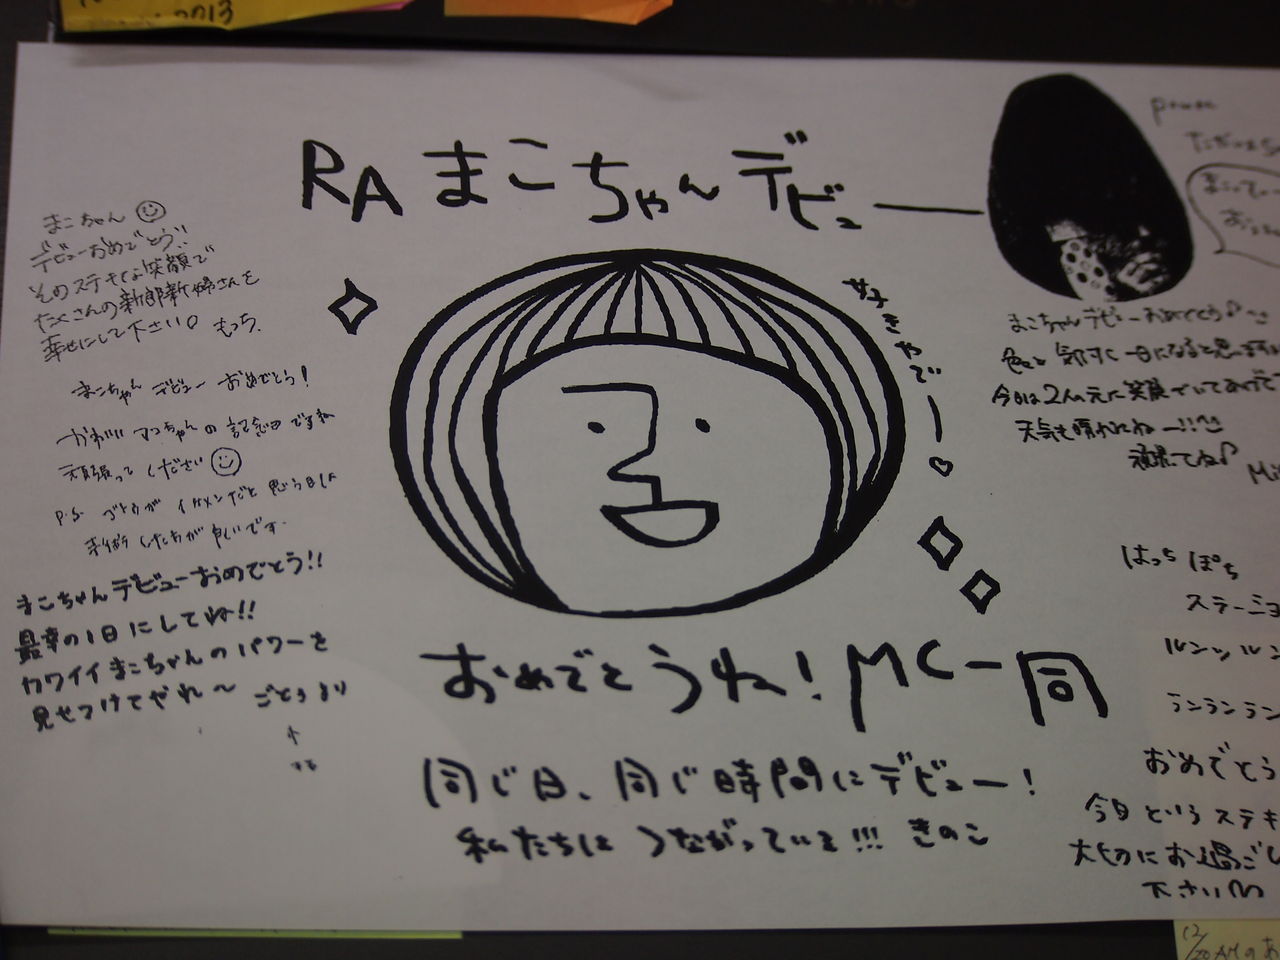 2013
RA まこちゃんデビュー
まこちゃん
デビューおめでとう!!
そのステキな笑顔で
たくさんの新郎新婦さんを
幸せにして下さい もっち.
まこちゃん デビュー おめでとう!
かわいい まこちゃんの記念日ですね
頑張って ください
P.S. ごとうが イケメンだと 思う
した方が良いです.
まこちゃんデビューおめでとう!!
最幸の1日にしてね!!
カワイイまこちゃんのパワーを
見せつけてやれ〜 ごとうより
好きやでー♡
おめでとうね! MC一同
同じ日、同じ時間にデビュー!
私たちは つながっている!!! きのこ
まこちゃんデビューおめでとう♪
色々 気付く一日になると思います
今日は2人元に笑顔でいてあげて
天気も晴れたねー!!
頑張ってね♪
はっち ぽっち
ステーショ
ルンルン
ランランラン
おめでとう
今日というステキ
大切にお過ごし
下さい
12/20 AM の お